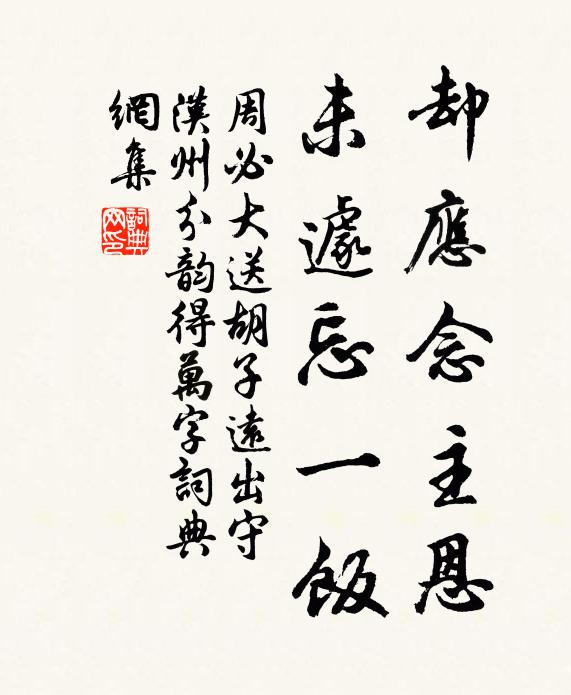 却應念主恩
未遽忘一飯
周必大送胡子遠出守
漢州分韵得萬字詞典
網集
詞典网印